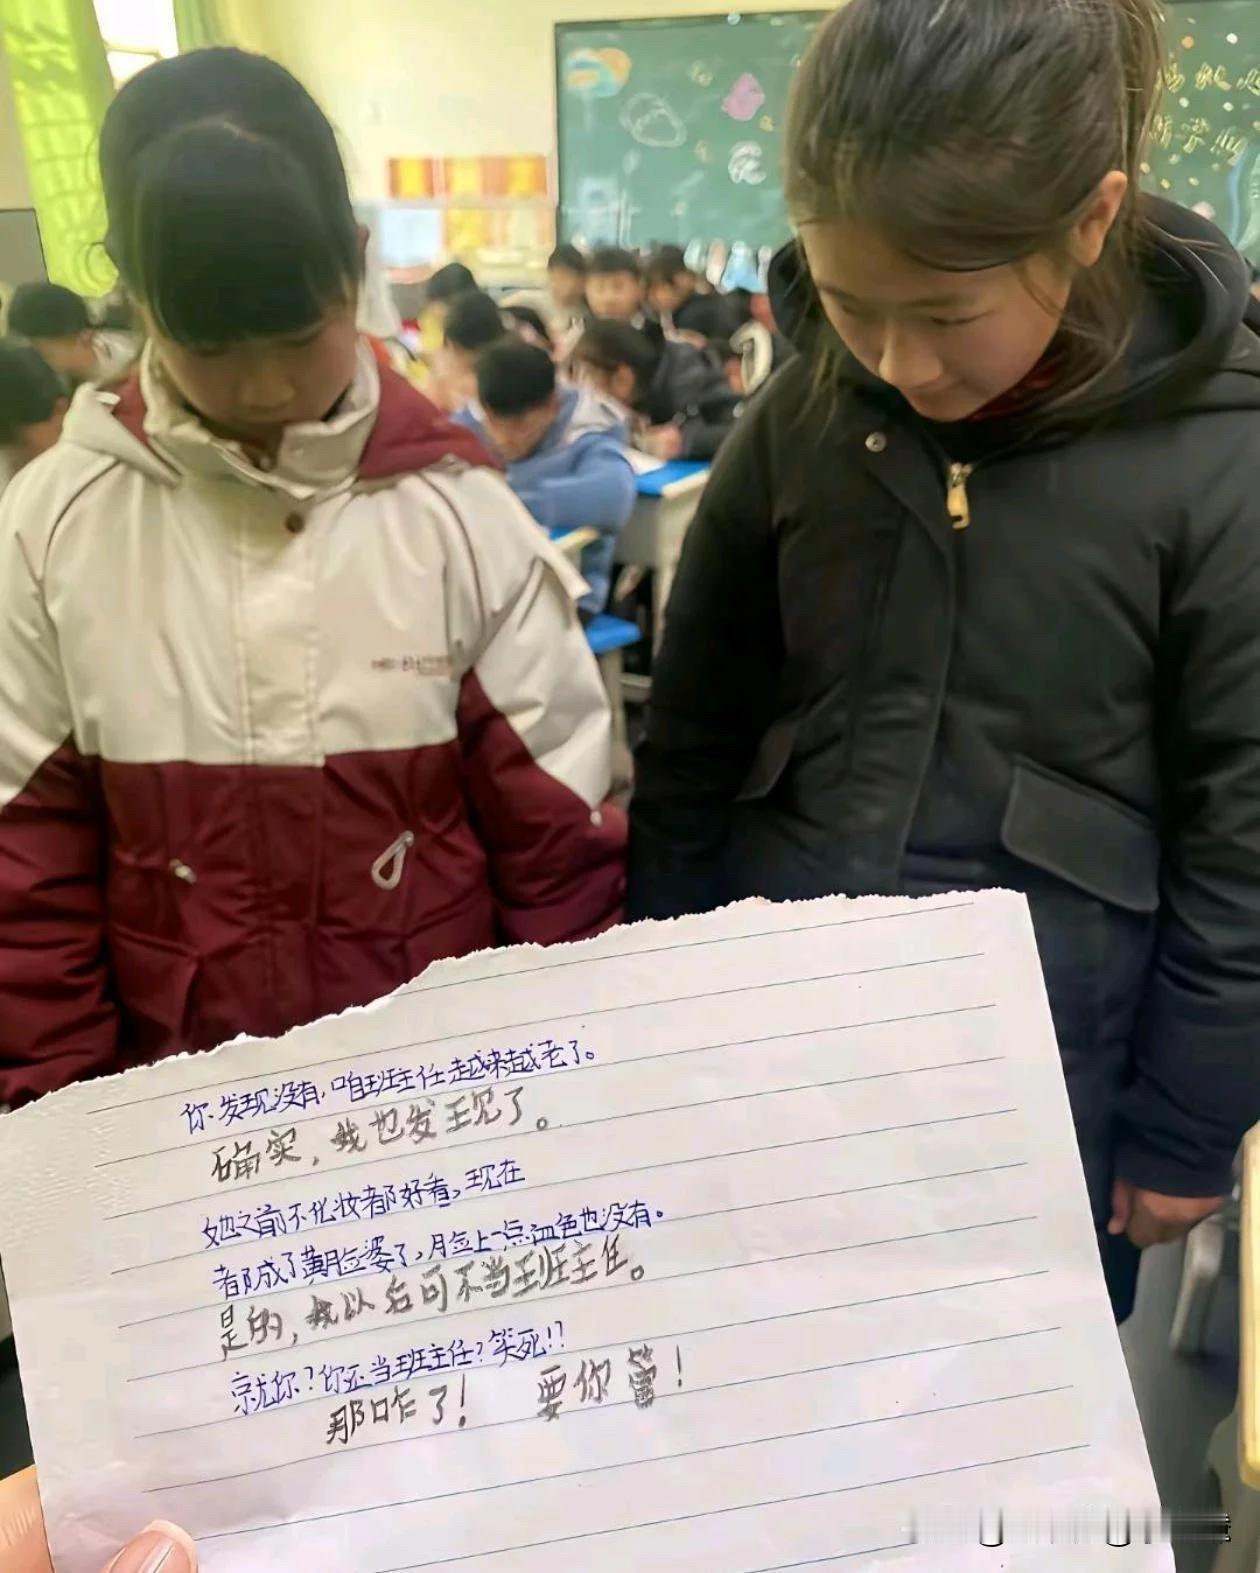 你发现没有,咱班主任越来越老了。
确实,我也发现了。
她之前不化妆都好看,现在
都成了黄脸婆了,脸上一点血色也没有。
是的,我以后可不当班主任。
就你?你还当班主任?笑死!?
那咋了! 要你管!